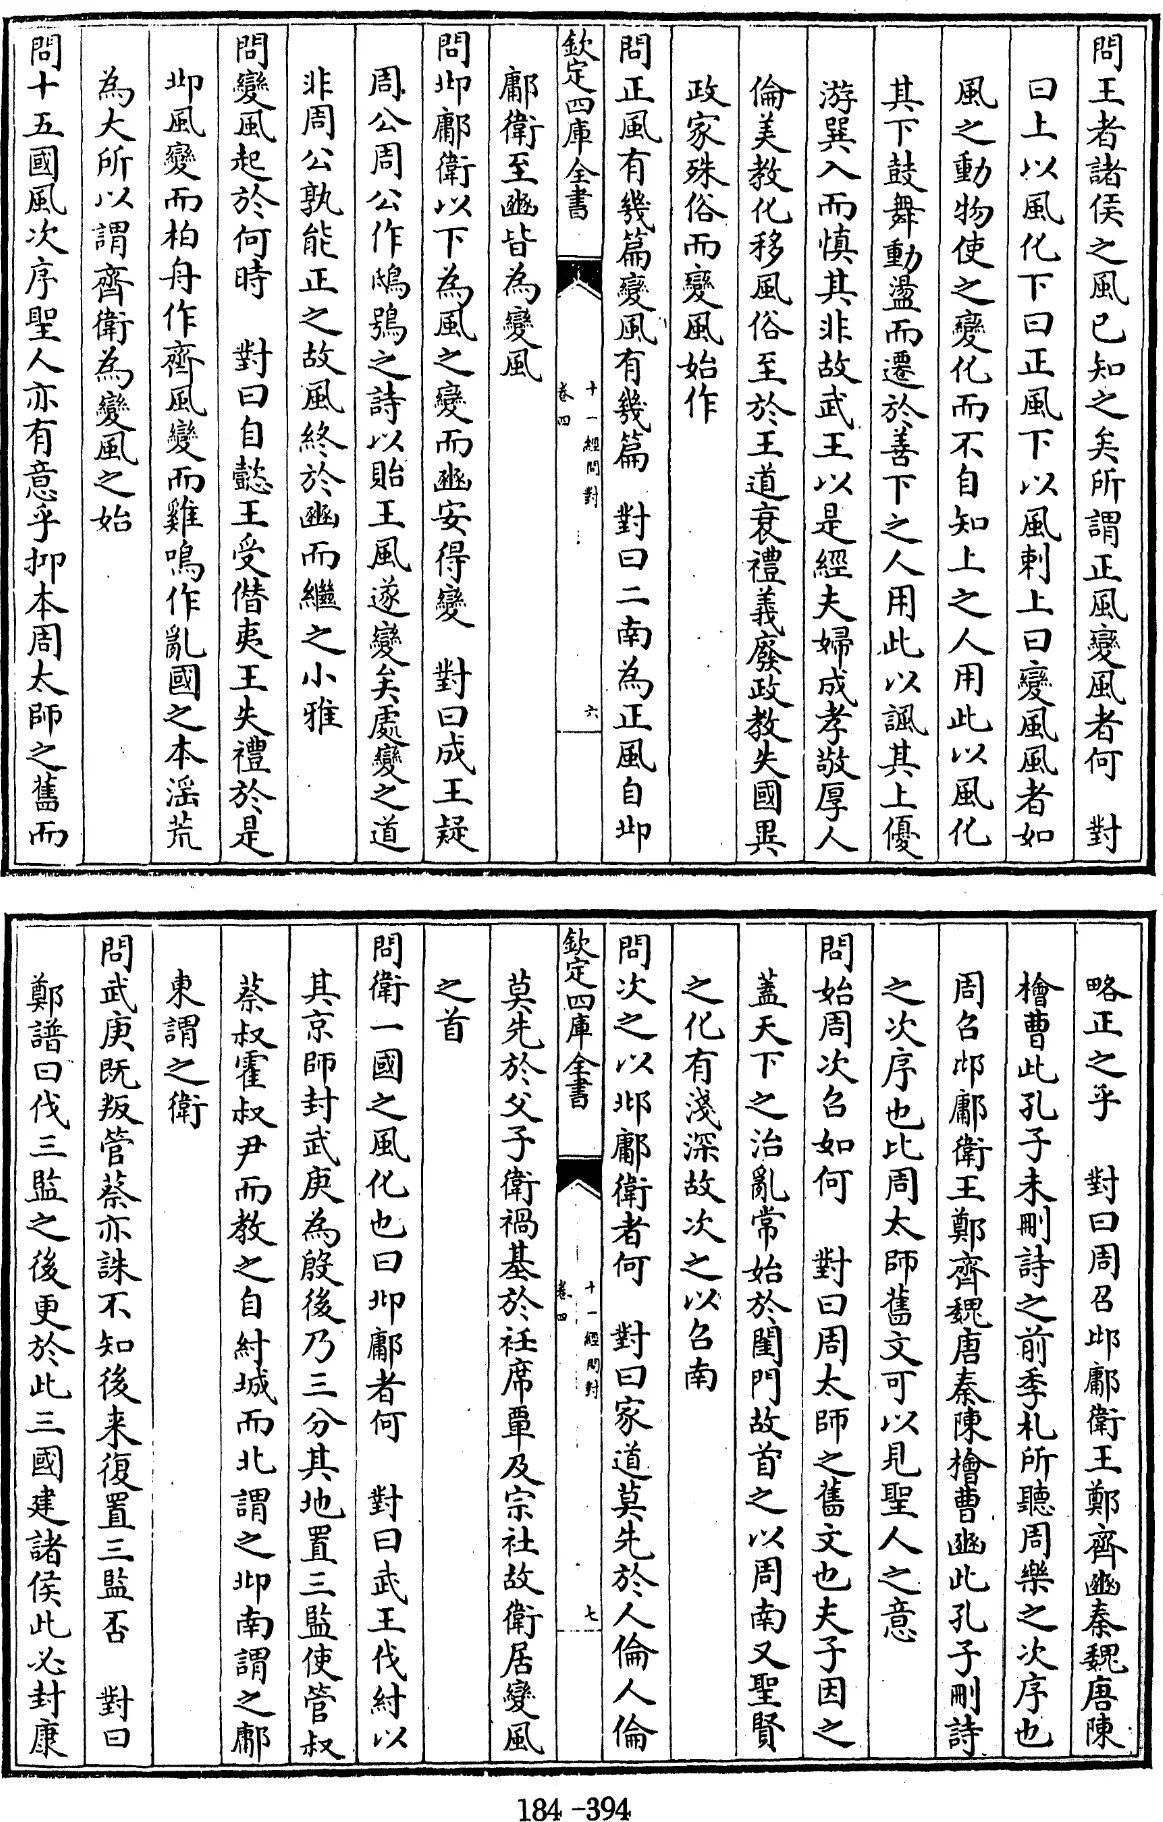 問王者諸侯之風已知之矣所謂正風變風者何　對
曰上以風化下曰正風下以風刺上曰變風風者如
風之動物使之變化而不自知上之人用此以風化
其下鼓舞動盪而遷於善下之人用此以諷其上優
游巽入而慎其非故武王以是經夫婦成孝敬厚人
倫美教化移風俗至於王道衰禮義廢政教失國異
政家殊俗而變風始作
問正風有幾篇變風有幾篇　對曰二南為正風自邶
欽定四庫全書
十一經問對
卷四
六
鄘衛至豳皆為變風
問邶鄘衛以下為風之變而豳安得變　對曰成王疑
周公周公作鴟鴞之詩以貽王風遂變矣處變之道
非周公孰能正之故風終於豳而繼之小雅
問變風起於何時　對曰自懿王受僣夷王失禮於是
邶風變而柏舟作齊風變而雞鳴作亂國之本滛荒
為大所以謂齊衛為變風之始
問十五國風次序聖人亦有意乎抑本周太師之舊而
略正之乎　對曰周召邶鄘衛王鄭齊豳秦魏唐陳
檜曹此孔子未刪詩之前季札所聽周樂之次序也
周召邶鄘衛王鄭齊魏唐秦陳檜曹豳此孔子刪詩
之次序也比周太師舊文可以見聖人之意
問始周次召如何　對曰周太師之舊文也夫子因之
蓋天下之治亂常始於閨門故首之以周南又聖賢
之化有淺深故次之以召南
問次之以邶鄘衛者何　對曰家道莫先於人倫人倫
欽定四庫全書
十一經問對
卷四
七
莫先於父子衛禍基於衽席覃及宗社故衛居變風
之首
問衛一國之風化也曰邶鄘者何　對曰武王伐紂以
其京師封武庚為殷後乃三分其地置三監使管叔
蔡叔霍叔尹而教之自紂城而北謂之邶南謂之鄘
東謂之衛
問武庚既叛管蔡亦誅不知後来復置三監否　對曰
鄭譜曰伐三監之後更於此三國建諸侯此必封康
184-394